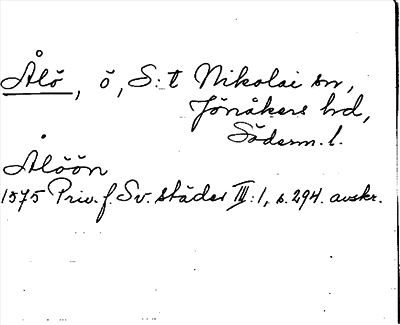 Ålö, ö, S:t Nikolai sn,
Jönåkers hd,
Söderm. l.
Ålöön
1575 Priv. f. Sv. städer III:1, s. 294. avskr.